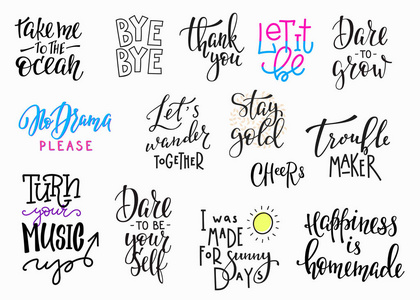 Take me
TO THE
Ocean
BYE
BYE
thank
you
LET it
be
Dare
TO
grow
No Drama
PLEASE
Let's
wander
TOGETHER
Stay
gold
CHEERS
Trouble
MAKER
TURN
your
MUSIC
up
Dare
TO BE
your
Self
I was
MADE
FOR Sunny
DAYS
Happiness
is
homemade